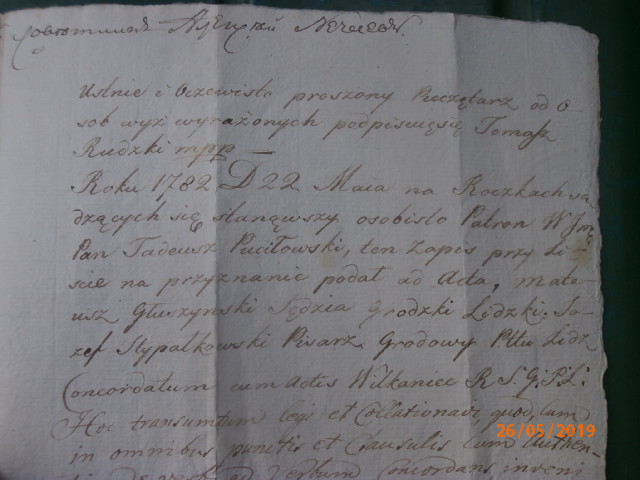 Ustnie i oczewisto proszony Pieczętarz od o-
sob wyż wyrażonych podpisuięsię Tomasz
Rudzki mpp
Roku 1782 D 22 Maia na Roczkach są-
dzących się stanąwszy osobisto Patron W Jmć
Pan Tadeusz Puciłowski, ten Zapis przy Li-
scie na przyznanie podał ad Acta, mate-
usz Głuszynski Sędzia Grodzki Lidzki. Jo-
zef Stypałkowski Pisarz Grodowy Pttu Lidz
Concordatum cum Actis Witkaniec R. S. G. P. L.
Hoc transumtum legi et Collationavi quod cum
in omnibus punctis et Clausulis cum Authen-
26/05/2019
ad Verbum Concordans inveni